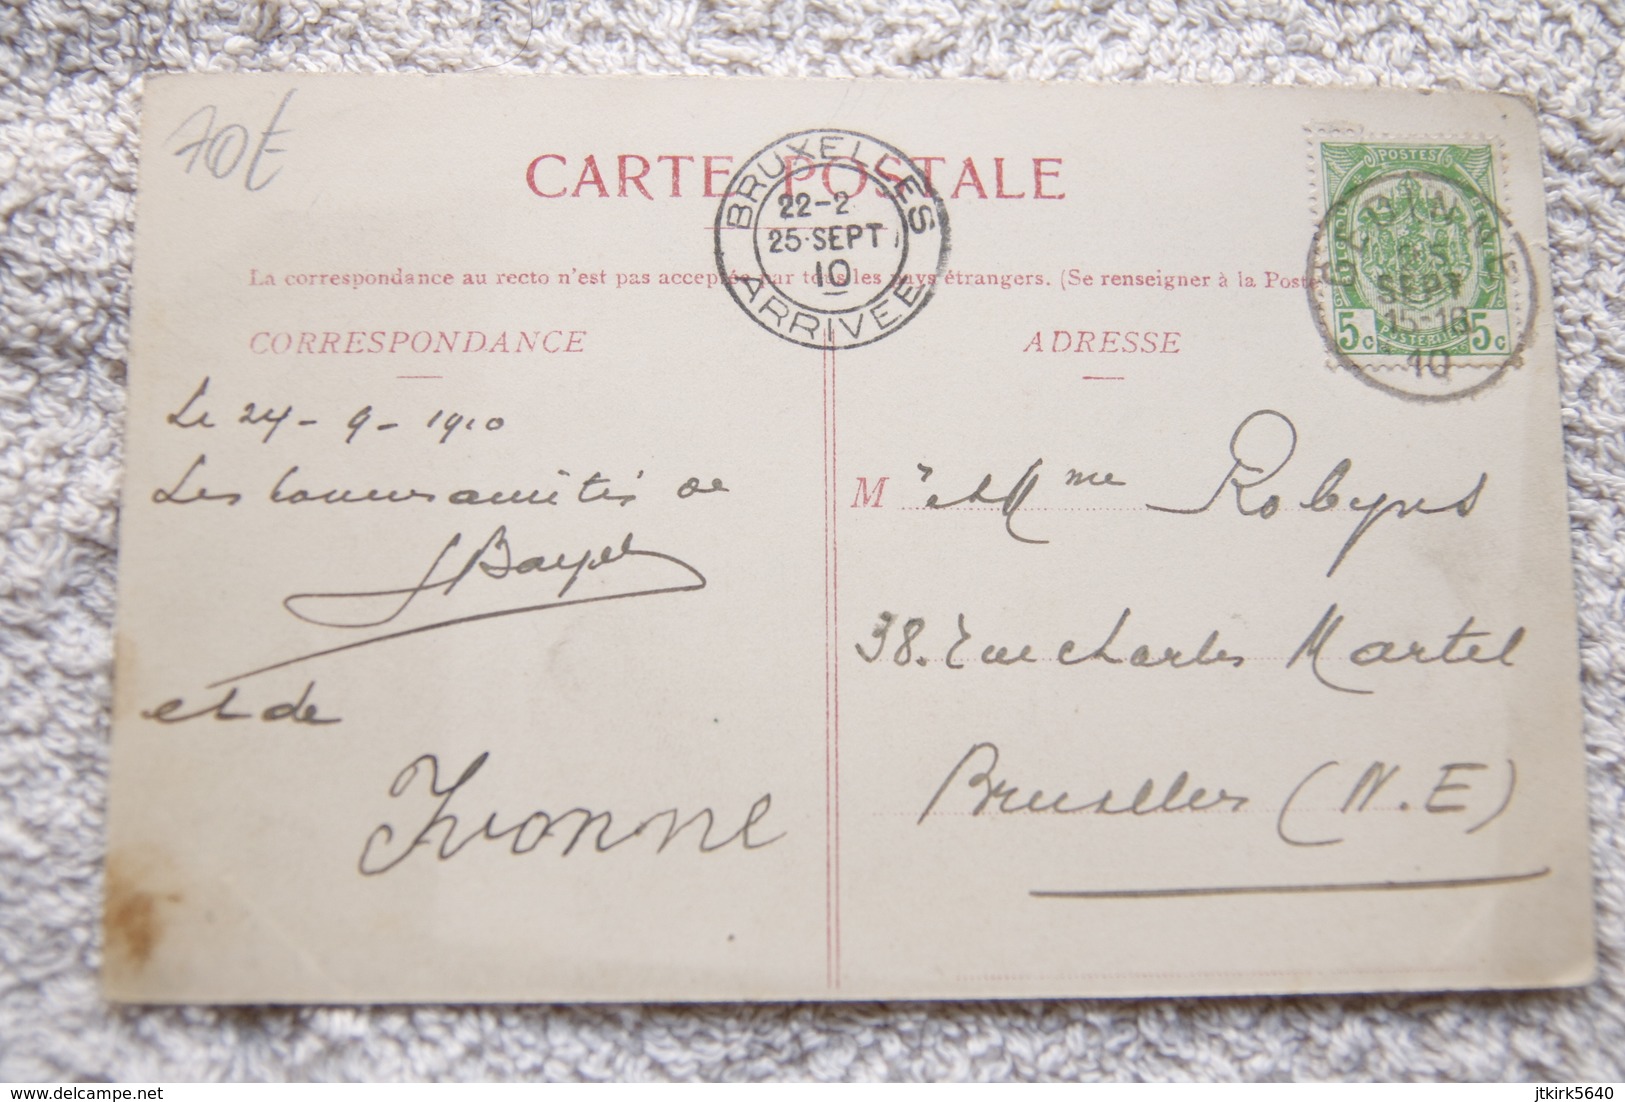 70t
CARTE POSTALE
BRUXELLES
22-2
25·SEPT
10
ARRIVEE
POSTES
BELGIQUE
SEPT
15-16
10
5c
POSTERIJEN
5c
La correspondance au recto n'est pas acceptée par tous les pays étrangers. (Se renseigner à la Poste
CORRESPONDANCE
ADRESSE
Le 24-9-1910
Les bonnes amitiés de
et de
Yvonne
M r et Mme Robyns
38. rue Charles Martel
Bruxelles (N.E)
delcampe.net
jtkirk5640